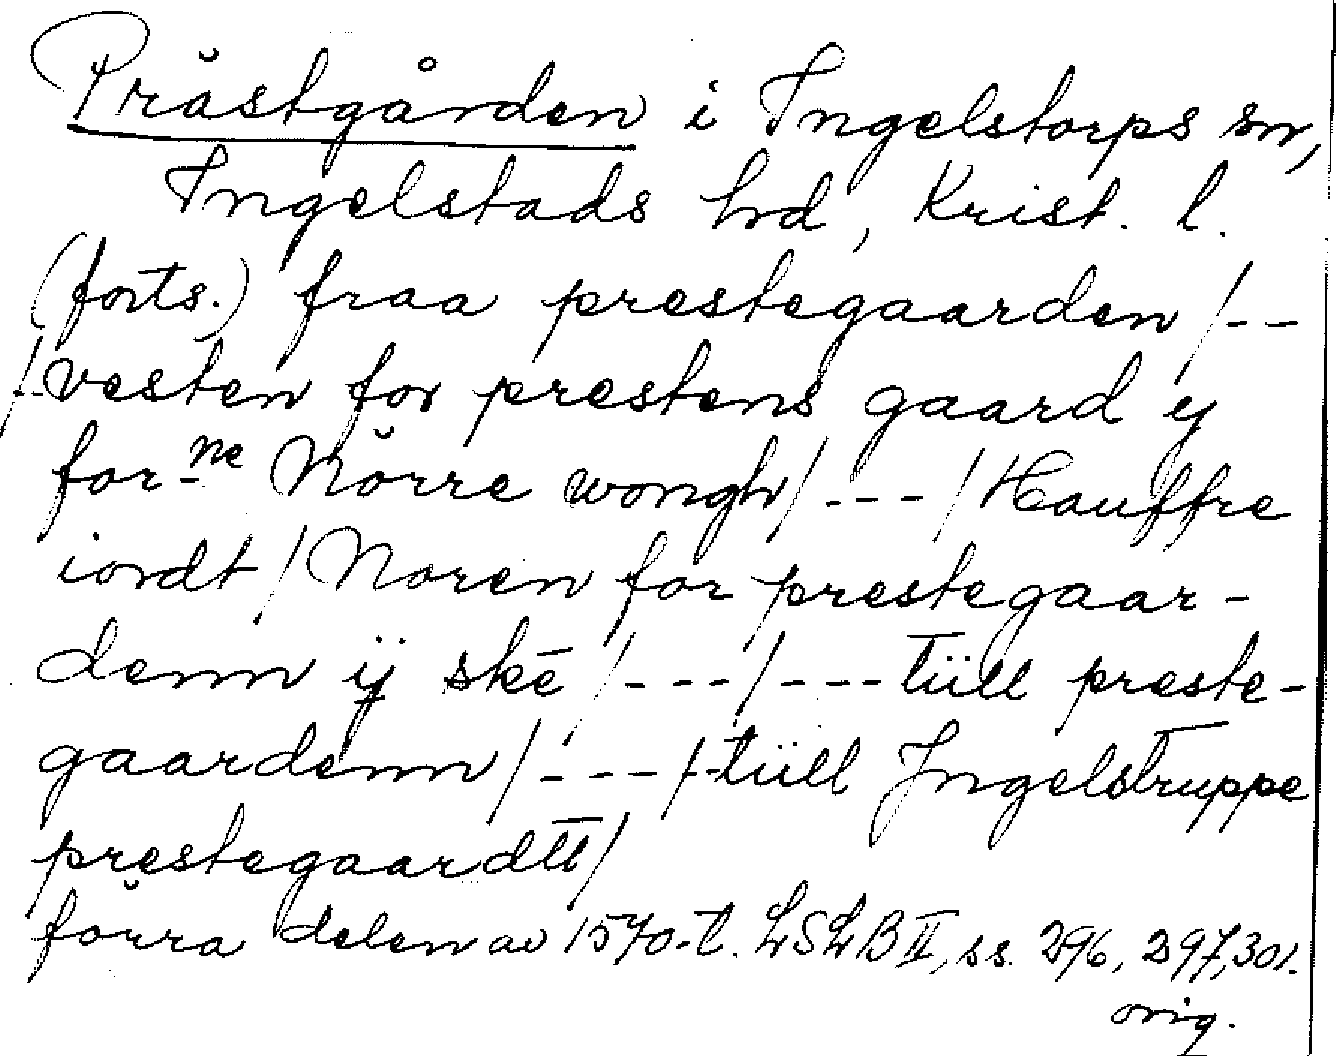 Prästgården i Ingelstorps sn,
Ingelstads hd, Krist. l.
(forts.) fraa prestegaarden /--
/--vesten for prestens gaard y
for-ne Nörre wongh/---/Hauffre
iordt/Noren for prestegaar-
denn ÿ skē/---/---tüll preste-
gaardenn/---/-tüll Jngelstruppe
prestegaardtt/
förra delen av 1570-t. LSLB II, ss. 296, 297, 301.
orig.